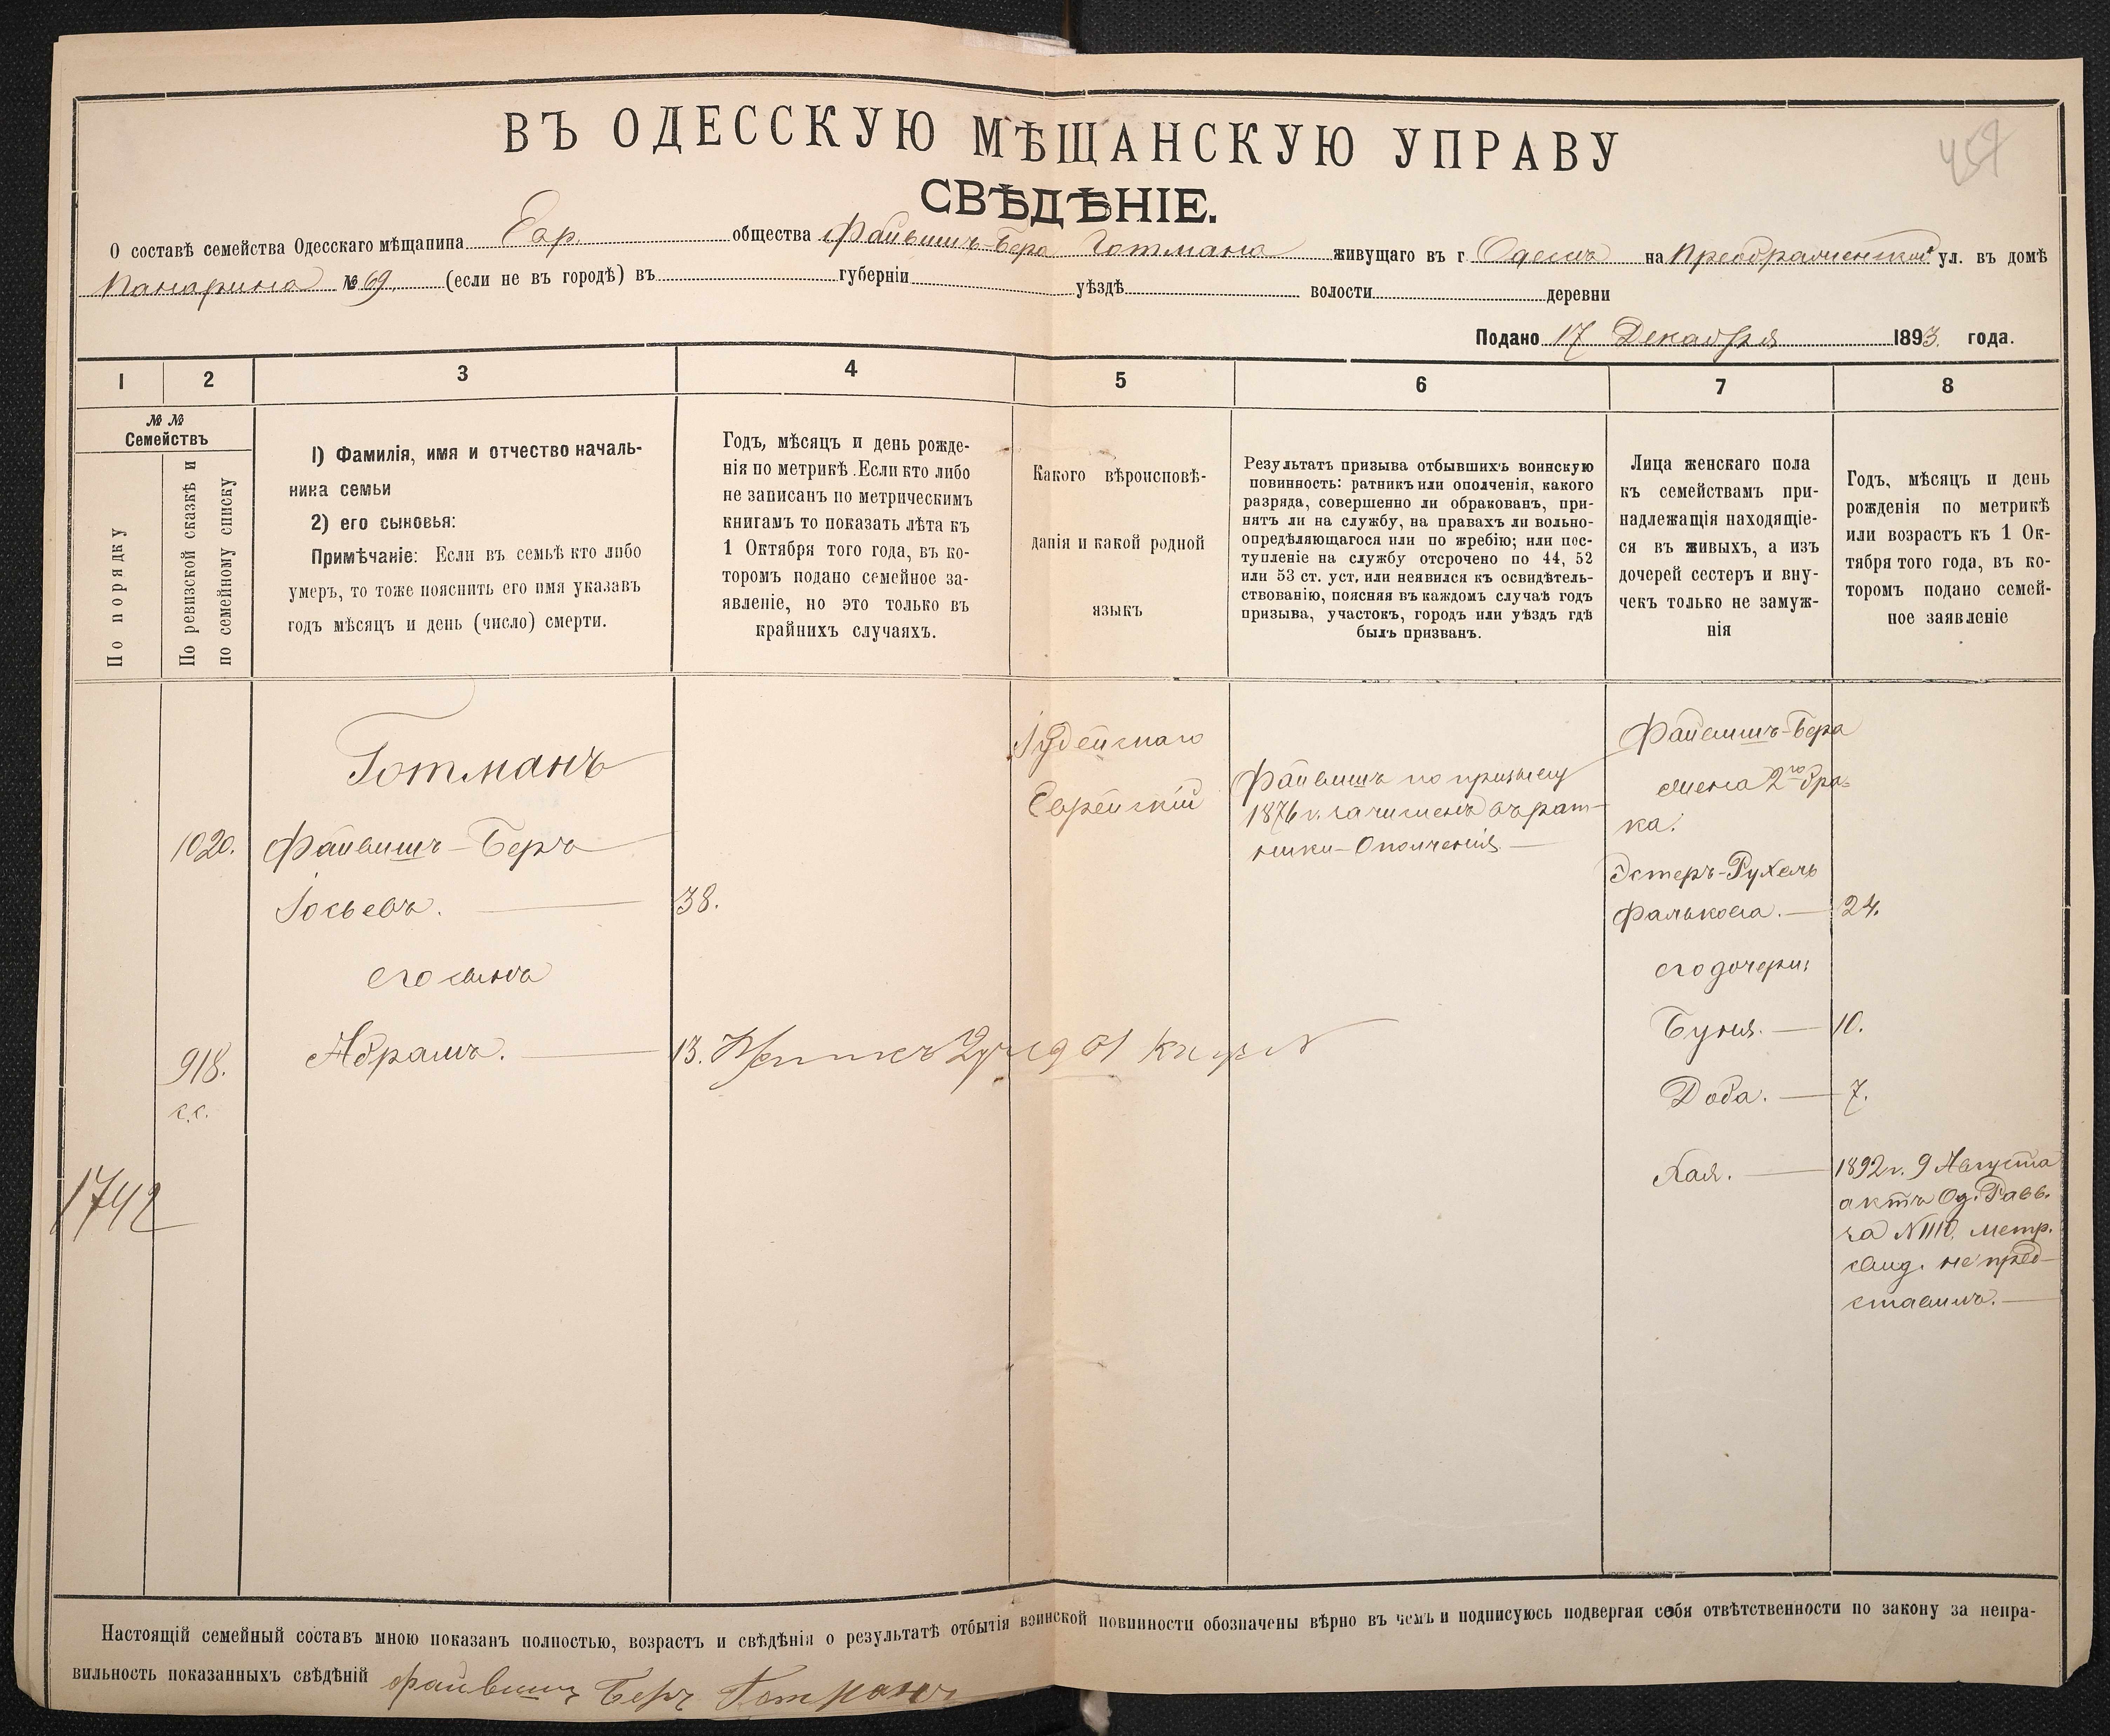 457
ВЪ ОДЕССКУЮ МѢЩАНСКУЮ УПРАВУ
СВѢДѢНІЕ.
О составѣ семейства Одесскаго мѣщанина Евр. общества Файвишъ-Бера Готмана живущаго въ г Одессѣ на Преображенской ул. въ домѣ
Панарина № 69. (если не въ городѣ) въ губерніи уѣздѣ волости деревни
Подано 17 Декабря 1893. года.
1 2 3 4 5 6 7 8
№ №
Семействъ
По порядку
По ревизской сказкѣ и
по семейному списку
1) Фамилія, имя и отчество началь-
ника семьи
2) его сыновья:
Примѣчаніе: Если въ семьѣ кто либо
умеръ, то тоже пояснить его имя указавъ
годъ мѣсяцъ и день (число) смерти.
Годъ, мѣсяцъ и день рожде-
нія по метрикѣ. Если кто либо
не записанъ по метрическимъ
книгамъ то показать лѣта къ
1 Октября того года, въ ко-
торомъ подано семейное за-
явленіе, но это только въ
крайнихъ случаяхъ.
Какого вѣроисповѣ-
данія и какой родной
языкъ
Результатъ призыва отбывшихъ воинскую
повинность: ратникъ или ополченія, какого
разряда, совершенно ли обракованъ, при-
нятъ ли на службу, на правахъ ли вольно-
опредѣляющагося или по жребію; или пос-
тупленіе на службу отсрочено по 44, 52
или 53 ст. уст, или неявился къ освидѣтель-
ствованію, поясняя въ каждомъ случаѣ годъ
призыва, участокъ, городъ или уѣздъ гдѣ
былъ призванъ.
Лица женскаго пола
къ семействамъ при-
надлежащія находящіе-
ся въ живыхъ, а изъ
дочерей сестеръ и вну-
чекъ только не замуж-
нія
Годъ, мѣсяцъ и день
рожденія по метрикѣ
или возрастъ къ 1 Ок-
тября того года, въ ко-
торомъ подано семей-
ное заявленіе
Готманъ
1020. Файвишъ-Беръ
Іосьевъ. 38.
его сынъ
918. Абрамъ. 13.
с.с.
1742
Іудейскаго
Еврейскій
Файвишъ по призыву
1876 г. зачисленъ въ рат-
ники-Ополченія
Файвишъ-Бера
жена 2го бра-
ка:
Эстеръ-Рухель
Фалькова. 24.
его дочери:
Буня. 10.
Доба. 7.
Хая. 1892 г. 9 Августа
актъ Од. Равв.
за N 1110. метр.
свид. не пред-
ставилъ.
Настоящій семейный составъ мною показанъ полностью, возрастъ и свѣдѣнія о результатѣ отбытія воинской повинности обозначены вѣрно въ чемъ и подписуюсь подвергая себя отвѣтственности по закону за непра-
вильность показанныхъ свѣдѣній Файвишъ Беръ Готманъ